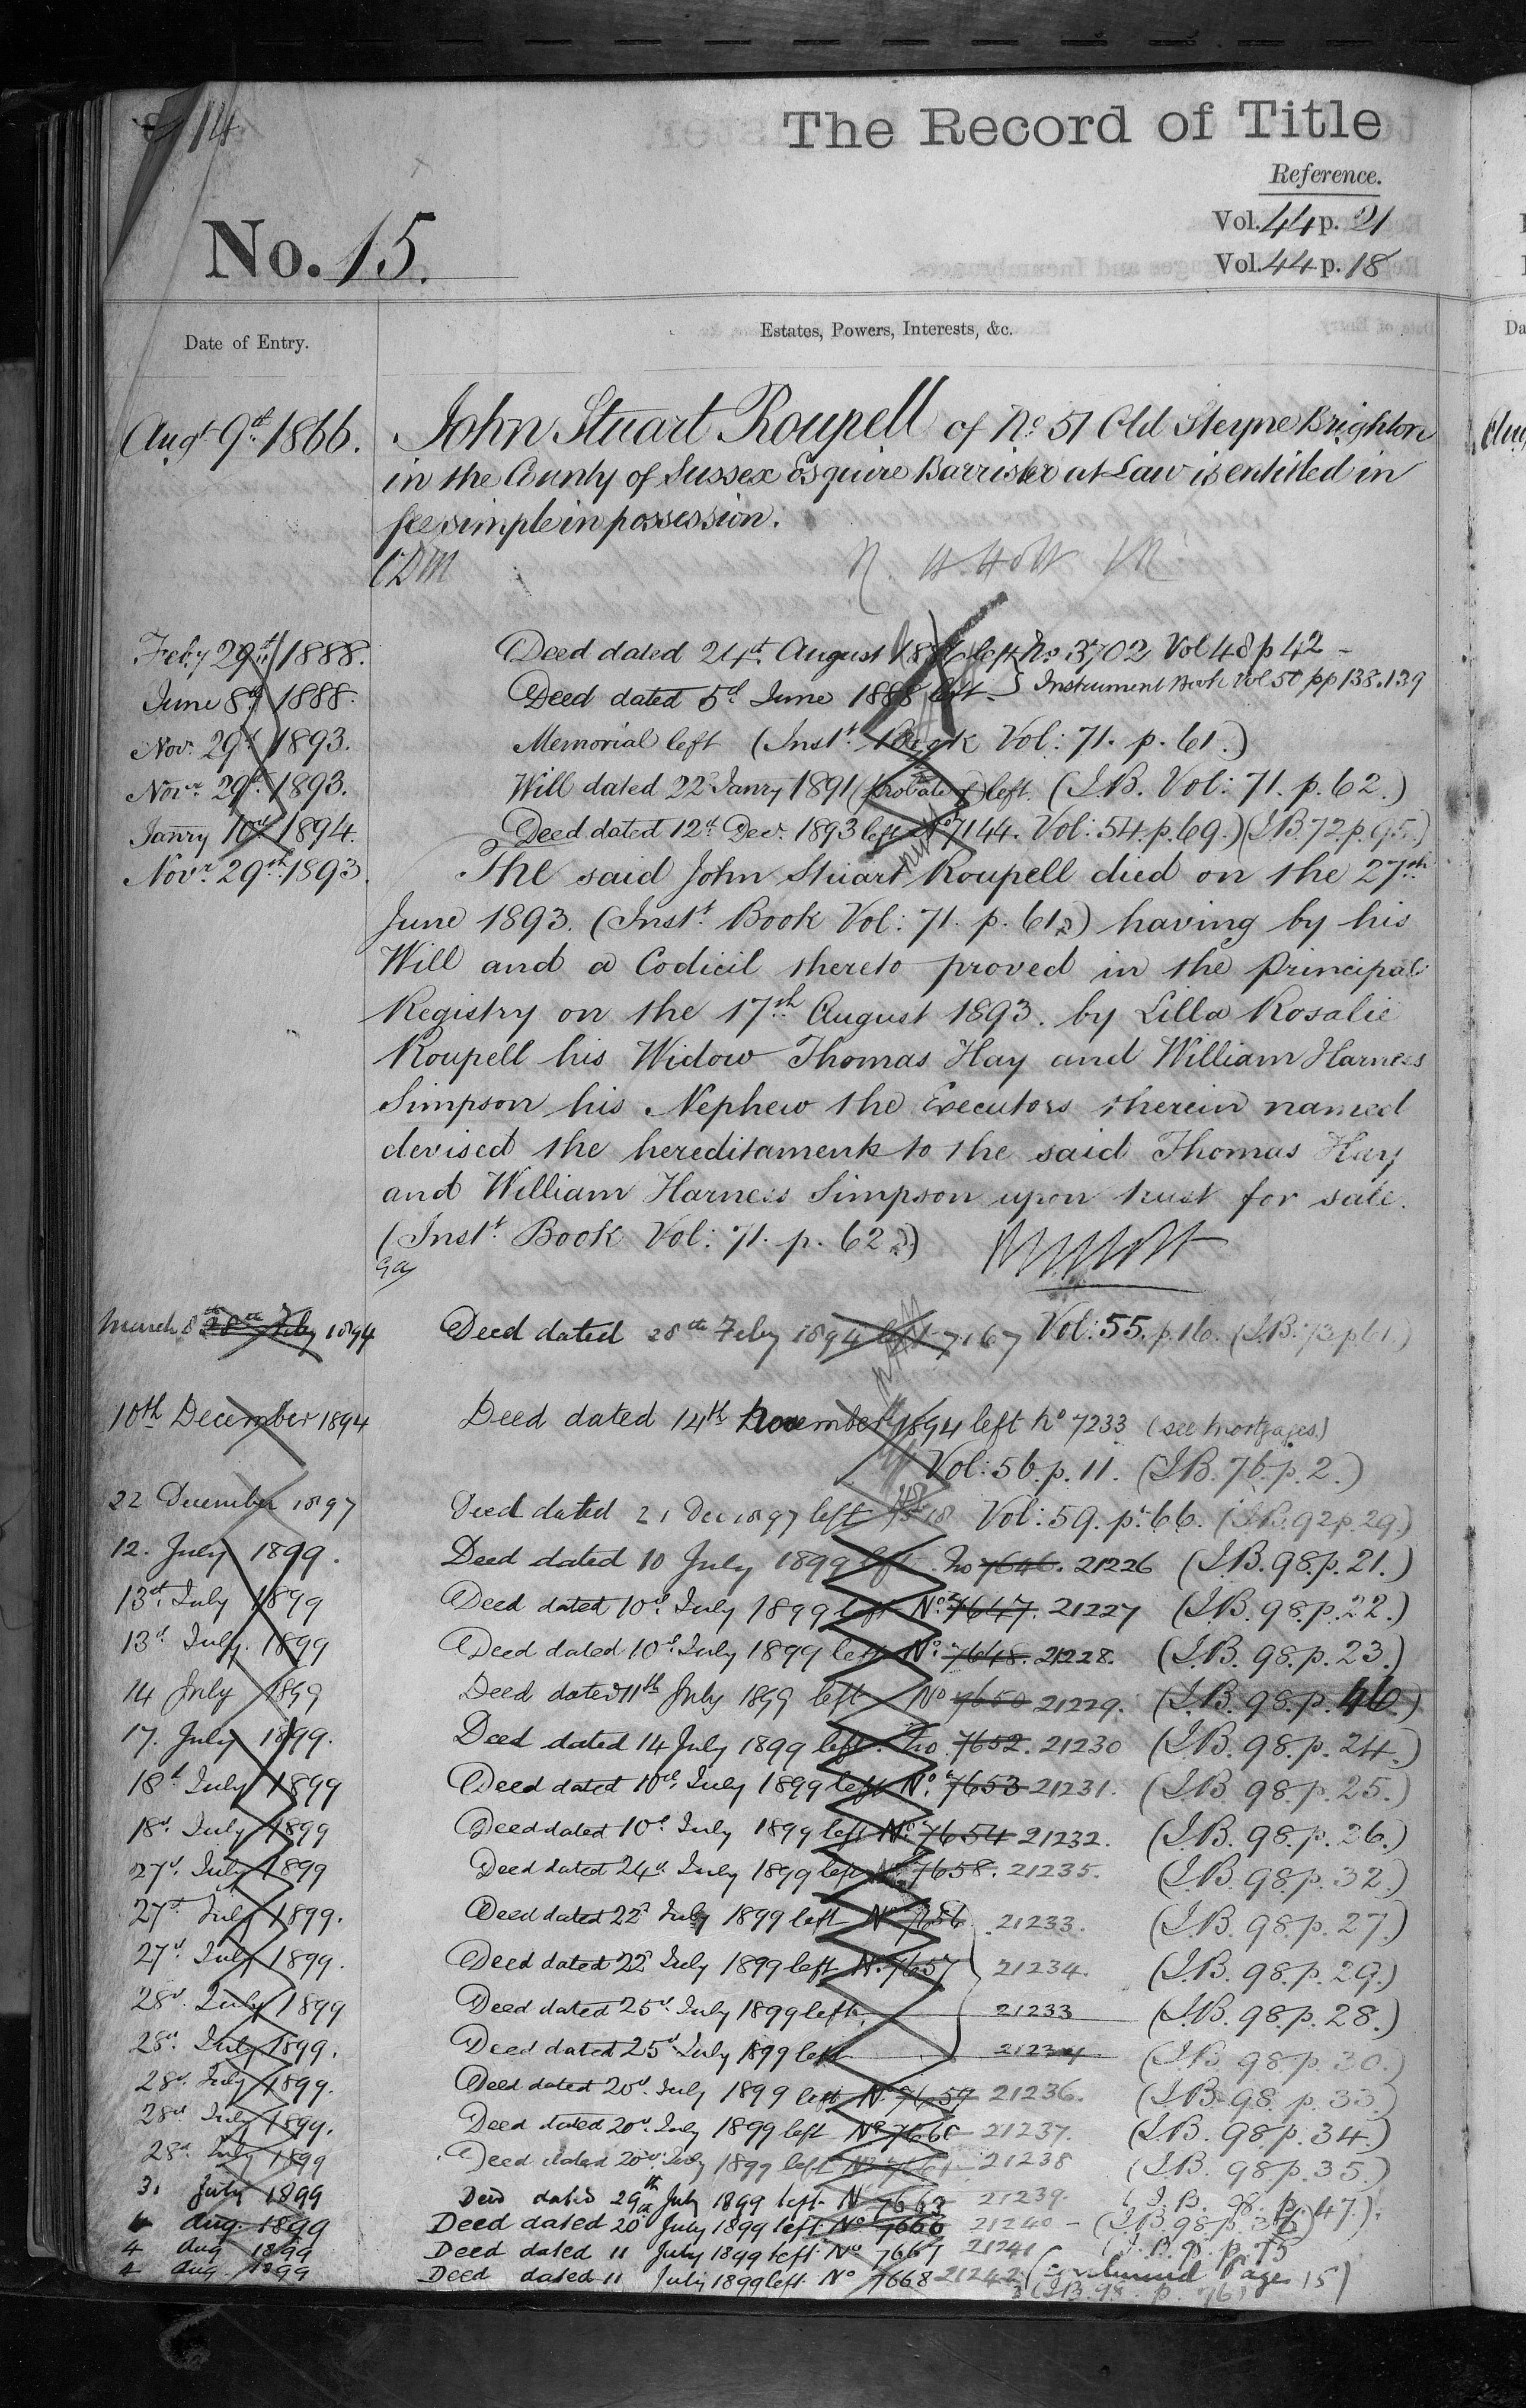 14
The Record of Title
Reference.
Vol. 44 p. 21
No. 15.
Vol. 44 p. 18
Date of Entry.
Estates, Powers, Interests, &c.
Augt 9th 1866. John Stuart Roupell of No 51 Old Steyne Brighton
in the County of Sussex Esquire Barrister at Law is entitled in
fee simple in possession.
CDM
Feby 29th 1888. Deed dated 24th August left No 3702 Vol 48 p 42 -
June 8th 1888. Deed dated 5th June 1888 left - } Instrument Book Vol 50 pp 138.139
Nov. 29th 1893. Memorial left (Instt. Book Vol: 71. p. 61.)
Novr. 29th 1893. Will dated 22d Janry 1891 (probate of) left. (I.B. Vol: 71. p. 62.)
Janry 10th 1894. Deed dated 12th Decr. 1893 left No 7144. Vol: 54. p. 69.) (I.B. 72. p. 95.)
Novr. 29th 1893. The said John Stuart Roupell died on the 27th
June 1893. (Instt. Book Vol: 71. p. 61.) having by his
Will and a Codicil thereto proved in the Principal
Registry on the 17th August 1893. by Lilla Rosalie
Roupell his Widow Thomas Hay and William Harness
Simpson his Nephew the Executors therein named
devised the hereditaments to the said Thomas Hay
and William Harness Simpson upon trust for sale.
(Instt. Book Vol: 71. p. 62.)
March 8th 28th Feby 1894 Deed dated 28th Feby 1894 left 7167 Vol: 55. p. 16. (I.B. 73 p 61.)
10th December 1894 Deed dated 14th November 1894 left No 7233 (see mortgages.)
Vol: 56. p. 11. (I.B. 76. p. 2.)
22 December 1897 Deed dated 21 Dec 1897 left Vol: 59. p. 66. (I.B. 92 p. 29.)
12. July 1899. Deed dated 10 July 1899 left. No 7646. 21226 (I.B. 98. p. 21.)
13th July 1899 Deed dated 10th July 1899 left No. 7647. 21227 (I.B. 98. p. 22.)
13th July. 1899 Deed dated 10th July 1899 left No. 7648. 21228. (I.B. 98. p. 23.)
14 July 1899 Deed dated 11th July 1899 left No 7650 21229. (I.B. 98. p. 46.)
17. July 1899. Deed dated 14 July 1899 left. No. 7652. 21230 (I.B. 98. p. 24.)
18th July 1899 Deed dated 10th July 1899 left No. 7653 21231. (I.B. 98. p. 25.)
18th July 1899 Deed dated 10th July 1899 left No. 7654 21232. (I.B. 98. p. 26.)
27th July 1899 Deed dated 24th July 1899 left No. 7658. 21235. (I.B. 98. p. 32.)
27th July 1899. Deed dated 22d July 1899 left No 7656 21233. (I.B. 98. p. 27.)
27th July 1899. Deed dated 22d July 1899 left No. 7657 21234. (I.B. 98. p. 29.)
28th July 1899 Deed dated 25th July 1899 left. 21233 (I.B. 98. p. 28.)
28th July 1899. Deed dated 25th July 1899 left 21234 (I.B. 98. p. 30.)
28th July 1899. Deed dated 20th July 1899 left No 7659 21236. (I.B. 98. p. 33.)
28th July 1899. Deed dated 20th July 1899 left No. 7660 21237. (I.B. 98. p. 34.)
28th July 1899 Deed dated 20th July 1899 left No 7661 21238 (I.B. 98. p. 35.)
31 July 1899 Deed dated 29th July 1899 left No 7663 21239. (I.B. 98. p. 47.)
4 Aug. 1899 Deed dated 20 July 1899 left No 7666 21240 - (I.B. 98. p.
4 Aug 1899 Deed dated 11 July 1899 left No 7667 21241 (I.B. 98. p. 75
4 Aug. 1899 Deed dated 11 July 1899 left No 7668 21242 (continued Page 15)
(I.B. 98. p. 76)